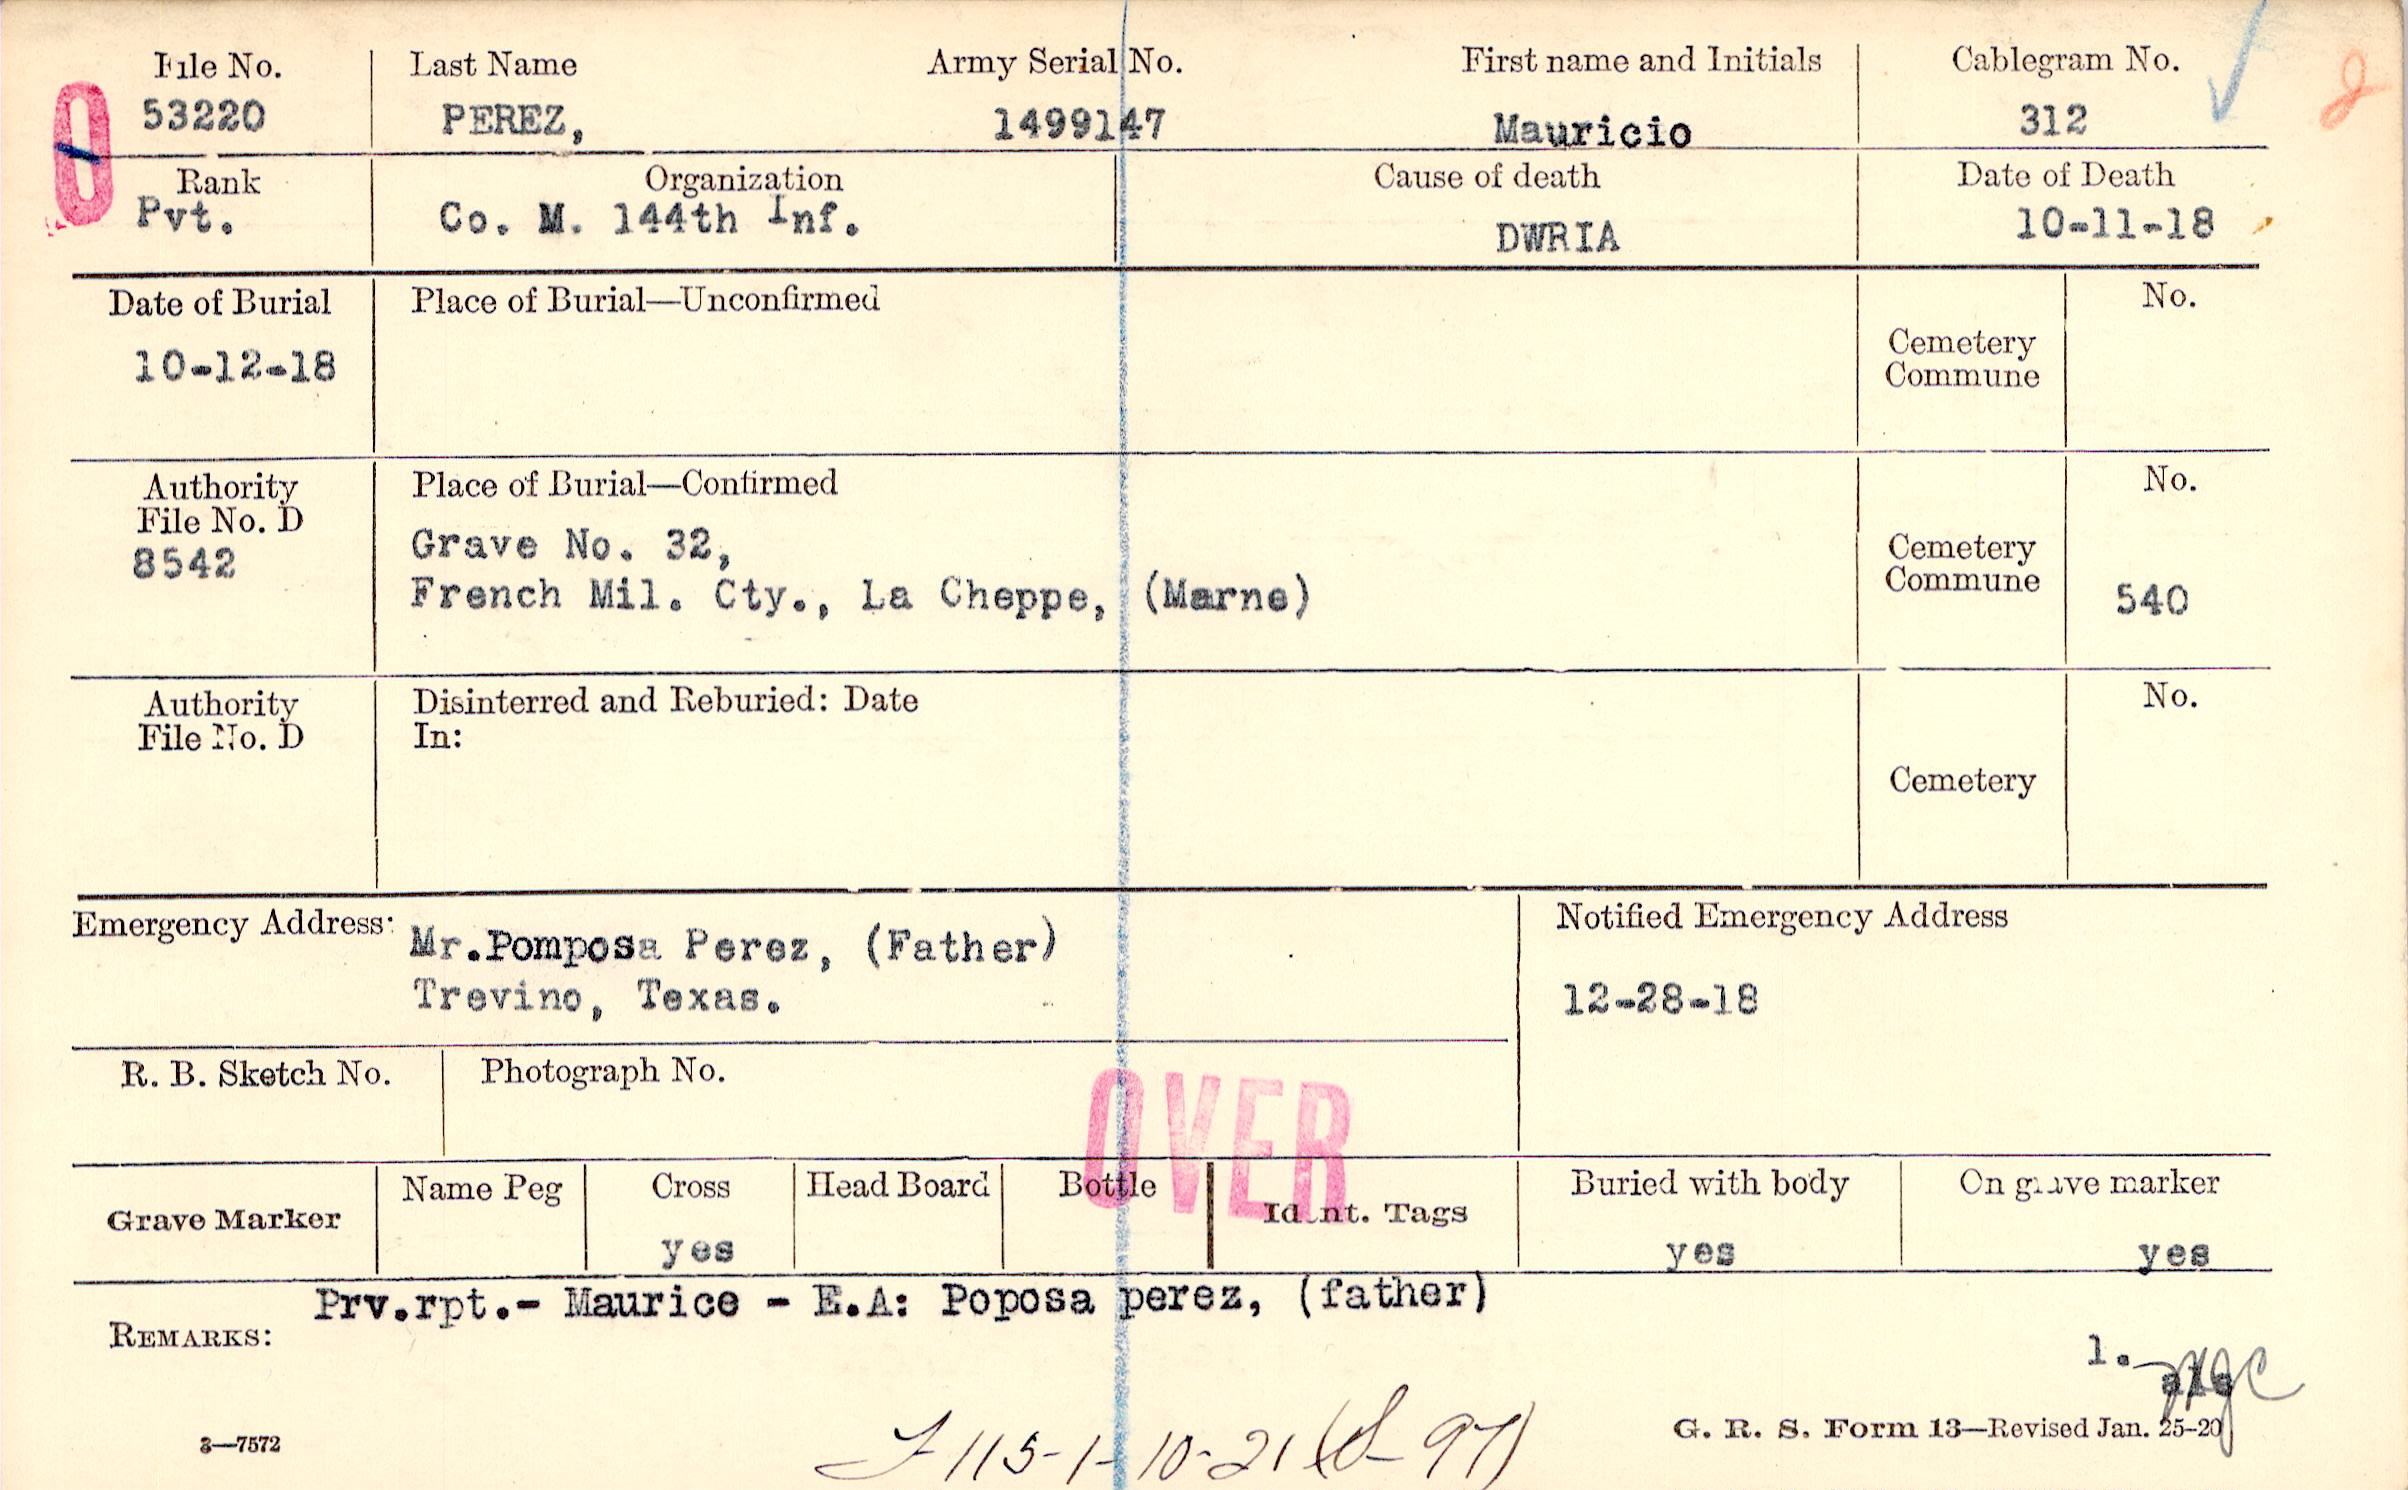 File No. Last Name Army Serial No. First name and Initials Cablegram No.
53220 PEREZ, 1499147 Mauricio 312
Rank Organization Cause of death Date of Death
Pvt. Co. M. 144th Inf. DWRIA 10-11-18
Date of Burial Place of Burial—Unconfirmed No.
10-12-18
Cemetery
Commune
Authority Place of Burial—Confirmed No.
File No. D
8542
Grave No. 32,
French Mil. Cty., La Cheppe, (Marne)
Cemetery
Commune
540
Authority Disinterred and Reburied: Date No.
File No. D In:
Cemetery
Emergency Address: Mr.Pomposa Perez, (Father)
Trevino, Texas.
Notified Emergency Address
12-28-18
R. B. Sketch No. Photograph No.
OVER
Grave Marker Name Peg Cross Head Board Bottle Ident. Tags Buried with body On grave marker
yes yes yes
Prv.rpt.- Maurice - E.A: Poposa perez, (father)
REMARKS:
1.
3—7572
115-1-10-21
G. R. S. Form 13—Revised Jan. 25-20